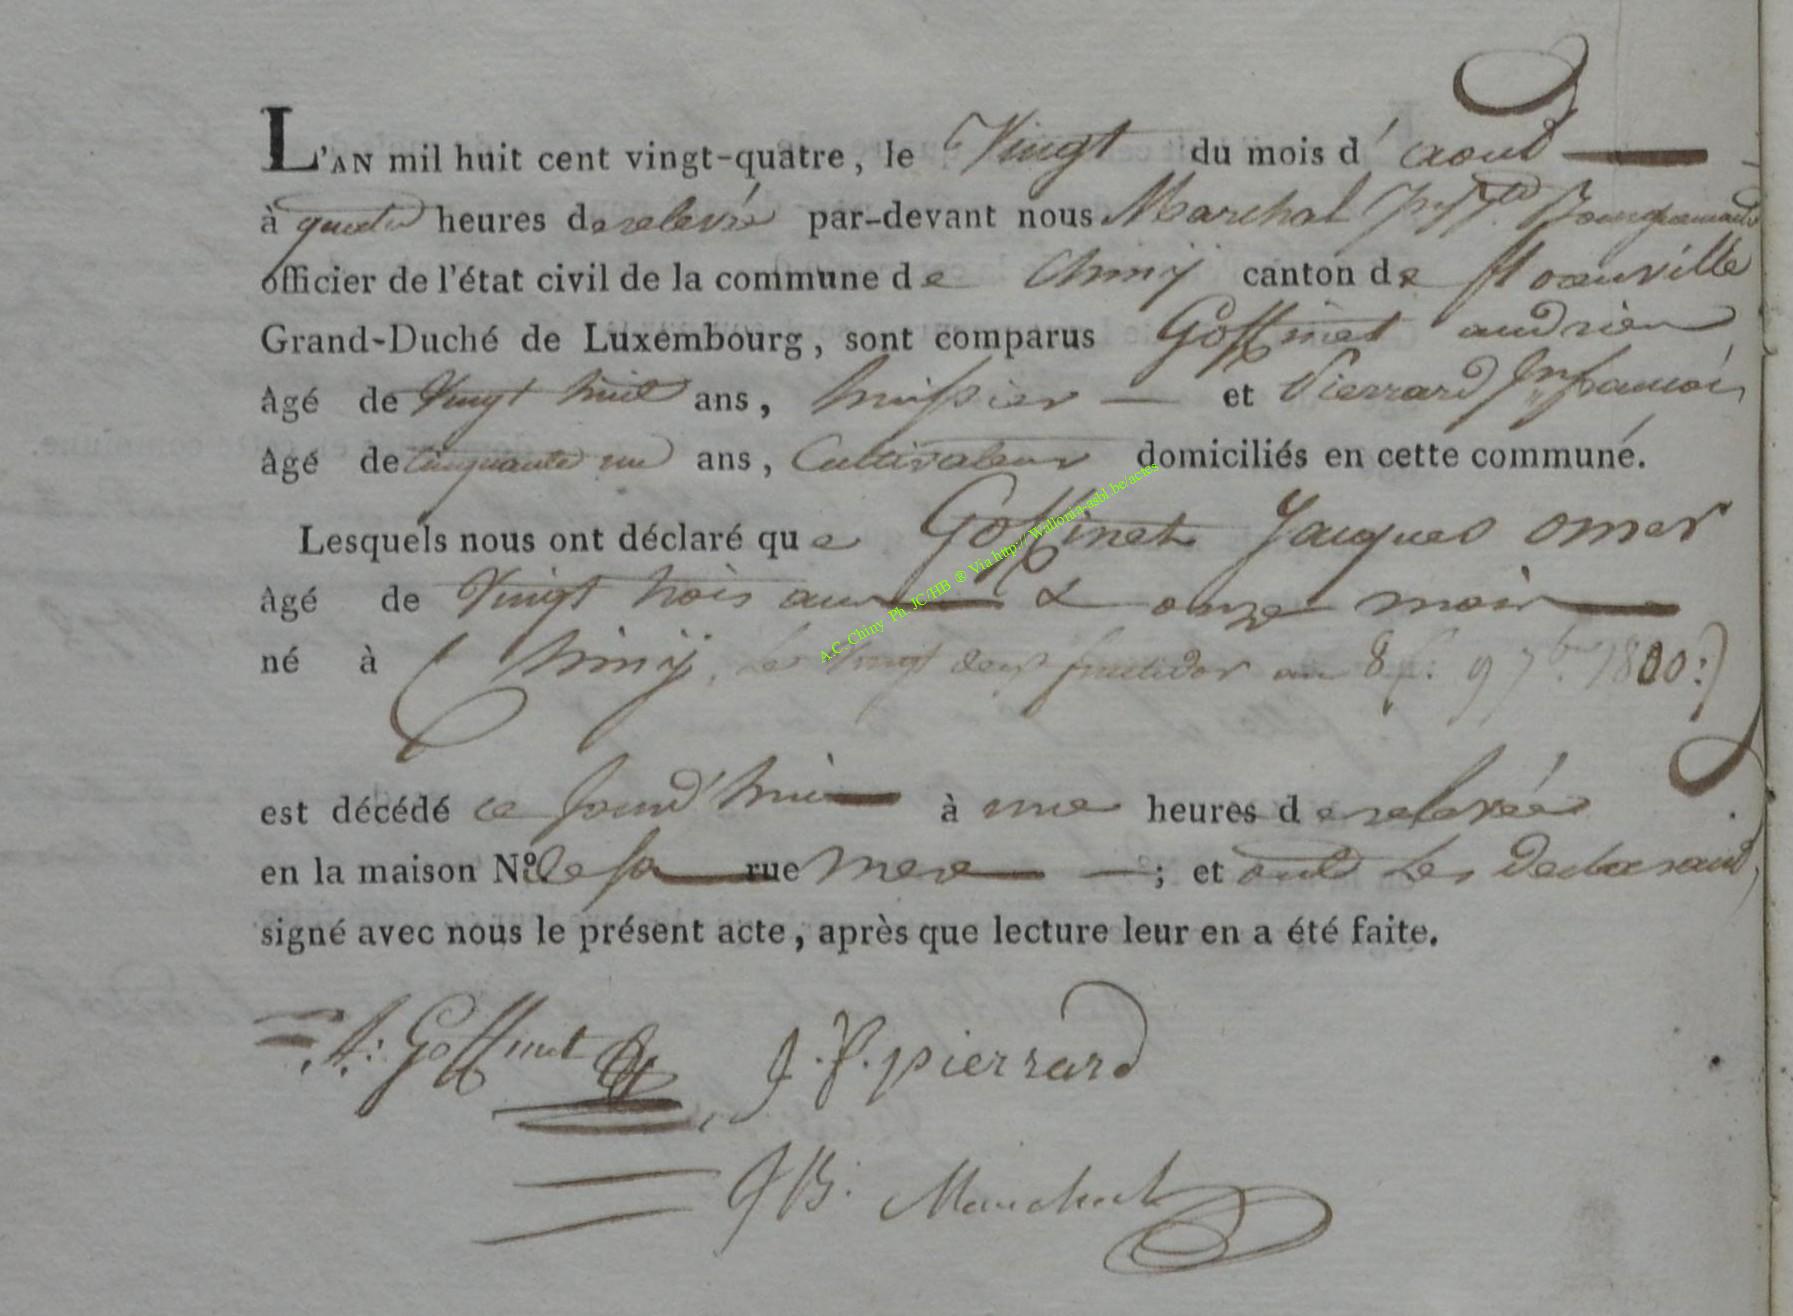 L'AN mil huit cent vingt-quatre, le Vingt du mois d'aout
à quatre heures de relevée par-devant nous Marchal Jn Bte Bourguemaitre
officier de l'état civil de la commune de Chiny canton de florenville
Grand-Duché de Luxembourg, sont comparus Goffinet andrien
âgé de Vingt huit ans, huissier et Pierrard Jn françois
âgé de cinquante un ans, Cultivateur domiciliés en cette commune.
Lesquels nous ont déclaré que Goffinet Jacques omer
âgé de Vingt trois ans & onze mois
né à Chiny, Les vingt deux fructidor an 8 (: 9 7bre 1800:)
est décédé ce jourd'hui à une heures de relevée
en la maison No. de sa rue mere ; et ont Les Declarants,
signé avec nous le présent acte, après que lecture leur en a été faite.
A: Goffinet J. f. pierrard
JB. Marchal
A.C. Chiny Ph. JC/HB ® Via http://Wallonia-asbl.be/actes